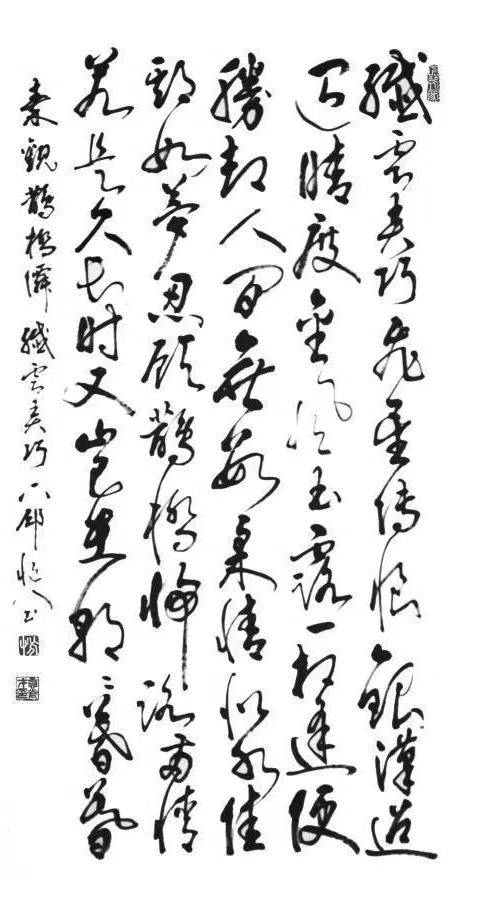 纖雲弄巧飛星傳恨銀漢迢
迢暗度金風玉露一相逢便
勝却人间無數柔情似水佳
期如夢忍顧鵲橋歸路两情
若是久长时又豈在朝々暮暮
秦觀鵲橋僊 纖雲弄巧